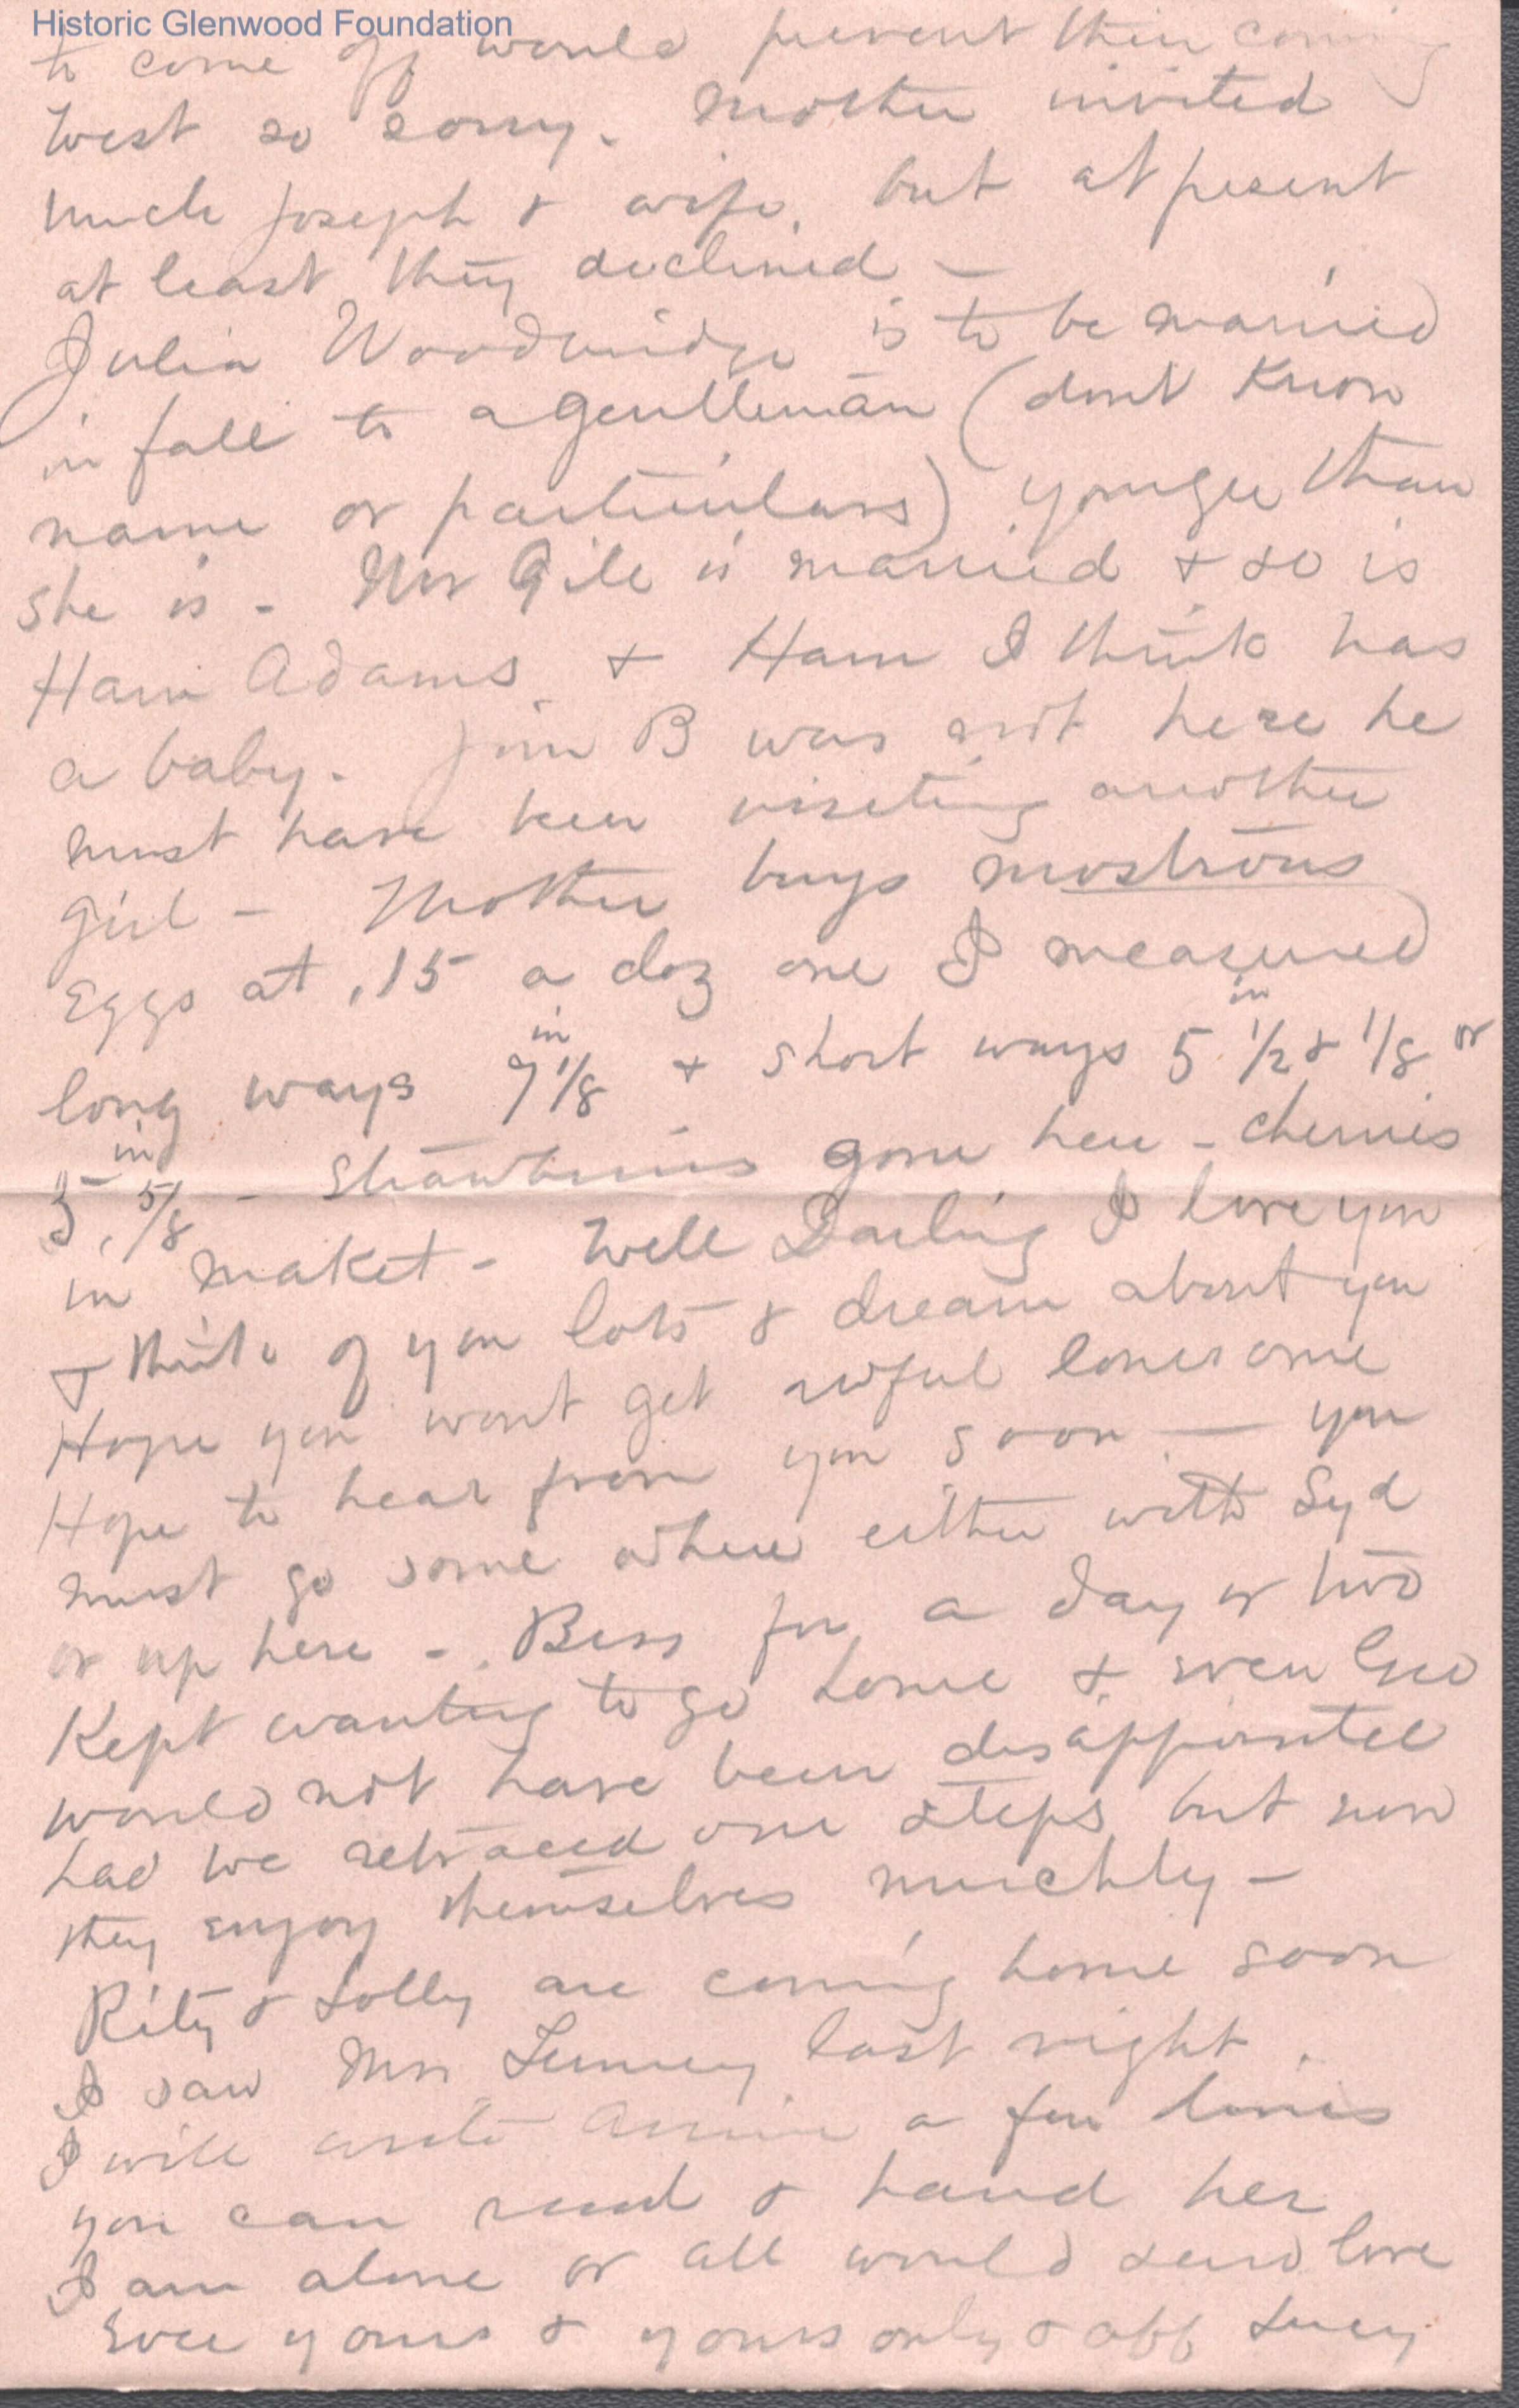 Historic Glenwood Foundation
to come off would prevent their coming
West so sorry. Mother invited
Uncle Joseph & wife, but at present
at least they declined –
Julia Woodbridge is to be married
in fall to a gentleman (dont know
name or particulars) younger than
she is – Mr Gile is married & so is
Ham Adams & Ham I think has
a baby. Jim B was not here he
must have been visiting another
girl – Mother buys mostrous
Eggs at .15 a doz one I measured
long ways 7 in 1/8 & short ways 5 in 1/2 & 1/8 or
5 in 5/8 – Strawberries gone here – cherries
in maket – Well Darling I love you
& think of you lots & dream about you
Hope you wont get awful lonesome
Hope to hear from you soon — you
must go some where either with Syd
or up here – Bess for a day or two
Kept wanting to go home & even Geo
would not have been disappointed
had we retraced our steps but now
they enjoy themselves muchly –
Rity & Lolly are coming home soon
I saw Mrs last night.
I will write Annie a few lines
you can read & hand her
I am alone or all would send love
Ever yours & yours only & aff Lucy